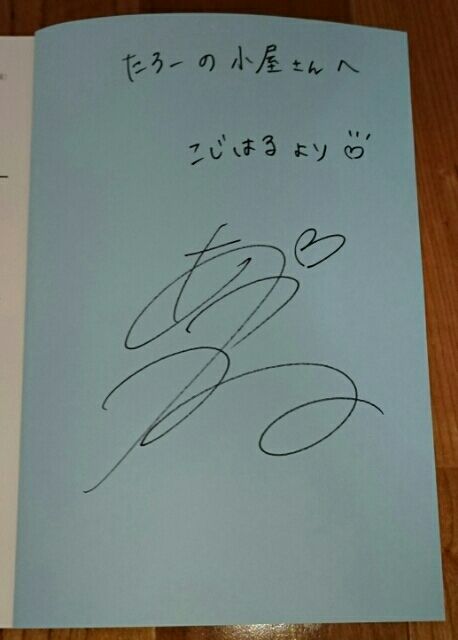 たろーの小屋さんへ
こじはるより♡